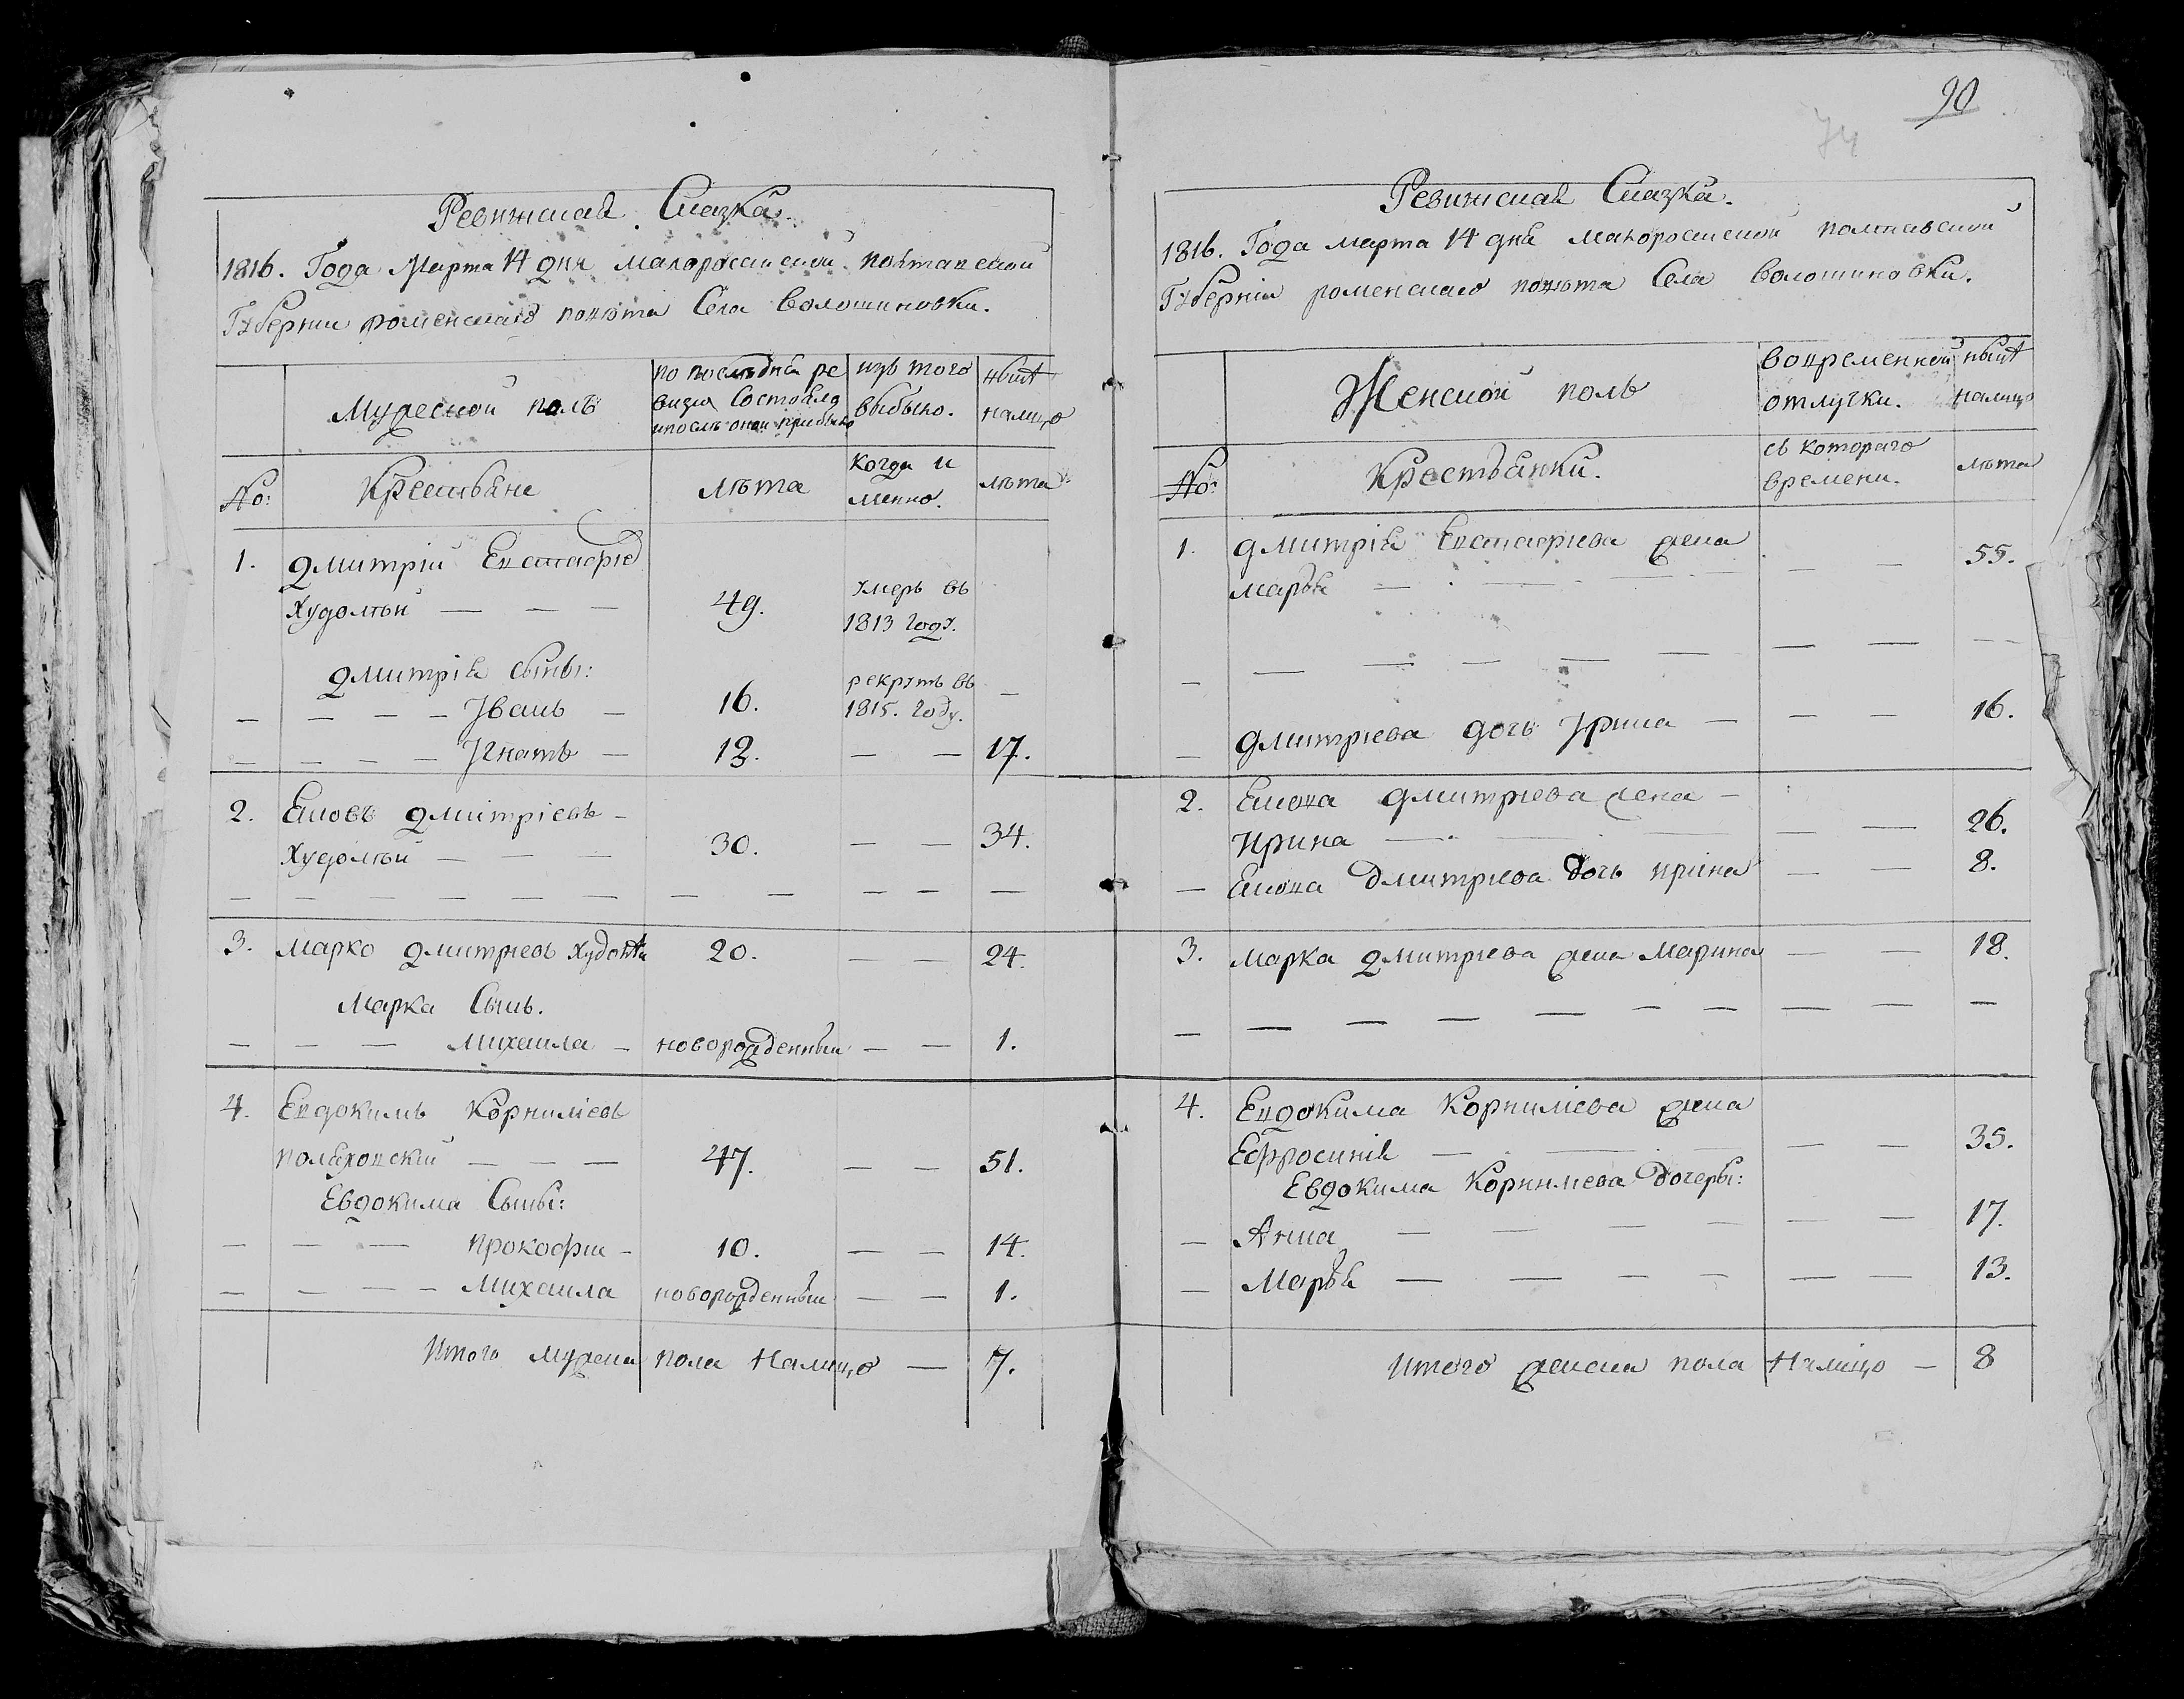 Ревижская Сказка.
1816. Года Марта 14 дня малороссийской полтавской
Губернии роменскаго повѣта Села Волошиновки.
Мужеской полъ
по последней ре
визии Состояло
и послѣ оной прибыло
изъ того
выбыло.
нынѣ
налицо
№:
Крестьяне
лѣта
когда и
менно.
лѣта
1. Дмитрій Евстафіев
Худолѣй — — — 49.
умеръ въ
1813 году.
Дмитрія сыны:
— — — — Іванъ — 16.
рекрутъ въ
1815. году. —
— — — — Ігнатъ — 12. — — 17.
2. Дмитріевъ —
Худолѣй — — — 30. — — 34.
— — — — — — — — — — —
3. марко Дмитриевъ Худолѣй 20. — — 24.
Марка Сынъ.
— — — михаила — новорожденный — — 1.
4. Евдокимъ Корниліевъ
полѣховскій — — — 47. — — 51.
Евдокима Сыны:
— — — прокофии — 10. — — 14.
— — — — Михаила новорожденный — — 1.
Итого мужеска пола налицо — 7.
90
74
Ревижская Сказка.
1816. Года марта 14 дня малоросийской полтавской
Губерніи роменскаго повѣта Села Волошиновки.
Женской полъ
вовременной
отлучки.
нынѣ
налицо
№:
Крестьянки.
съ котораго
времени.
лѣта
1. Дмитрія Евстафиева жена
марья — — — — — 55.
— — — — — — — — —
— Дмитриева дочь Ірина — — — 16.
2. Дмитриева жена —
Ирина — — — — — 26.
— Дмитриева дочь ирина — — 8.
3. марка Дмитриева жена Марина — — 18.
— — — — — — — — — —
4. Евдокима Корнилиева жена
Ефросинія — — — — 35.
Евдокима Корнилиева дочеры:
— Анна — — — — — — 17.
— Марья — — — — — — 13.
Итого женска пола налицо — 8